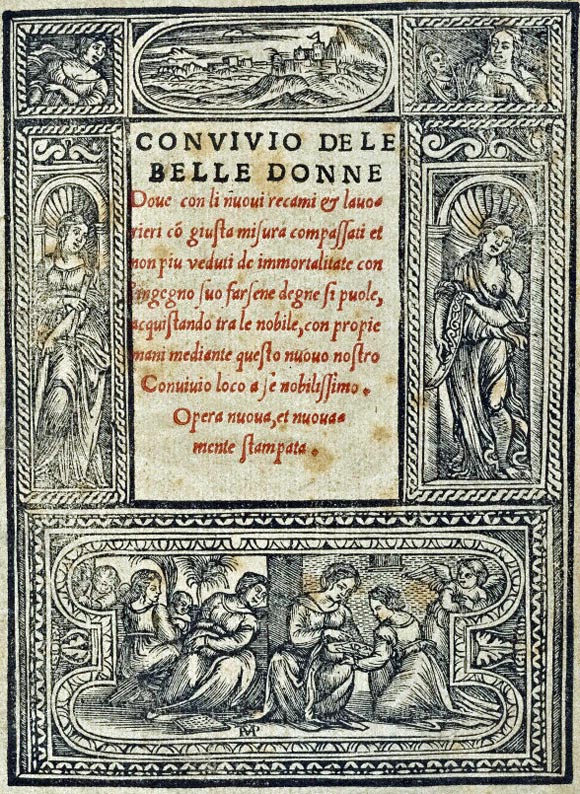 CONVIVIO DELE
BELLE DONNE
Doue con li nuoui recami & lauo=
rieri cõ giuſta miſura compaſſati et
non piu veduti de immortalitate con
l'ingegno ſuo farſene degne ſi puole,
acquiſtando tra le nobile, con propie
mani mediante queſto nuouo noſtro
Conuiuio loco a ſe nobiliſſimo.
Opera nuoua, et nuoua=
mente ſtampata.